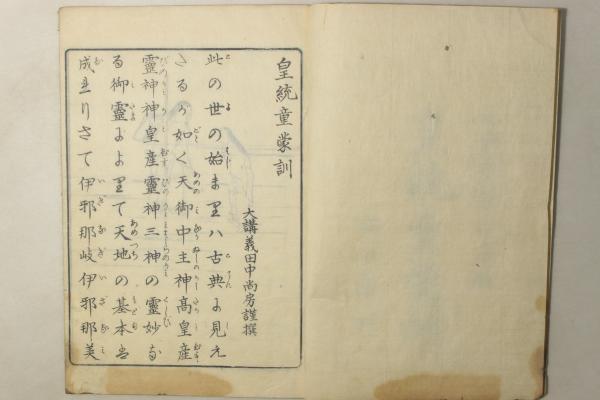 皇統童蒙訓
大講義田中尚房謹撰
此の世の始まりハ古典に見え
たるが如く天御中主神高皇産
靈神神皇産靈神三神の靈妙な
る御靈によりて天地の基本も
成りさて伊邪那岐伊邪那美